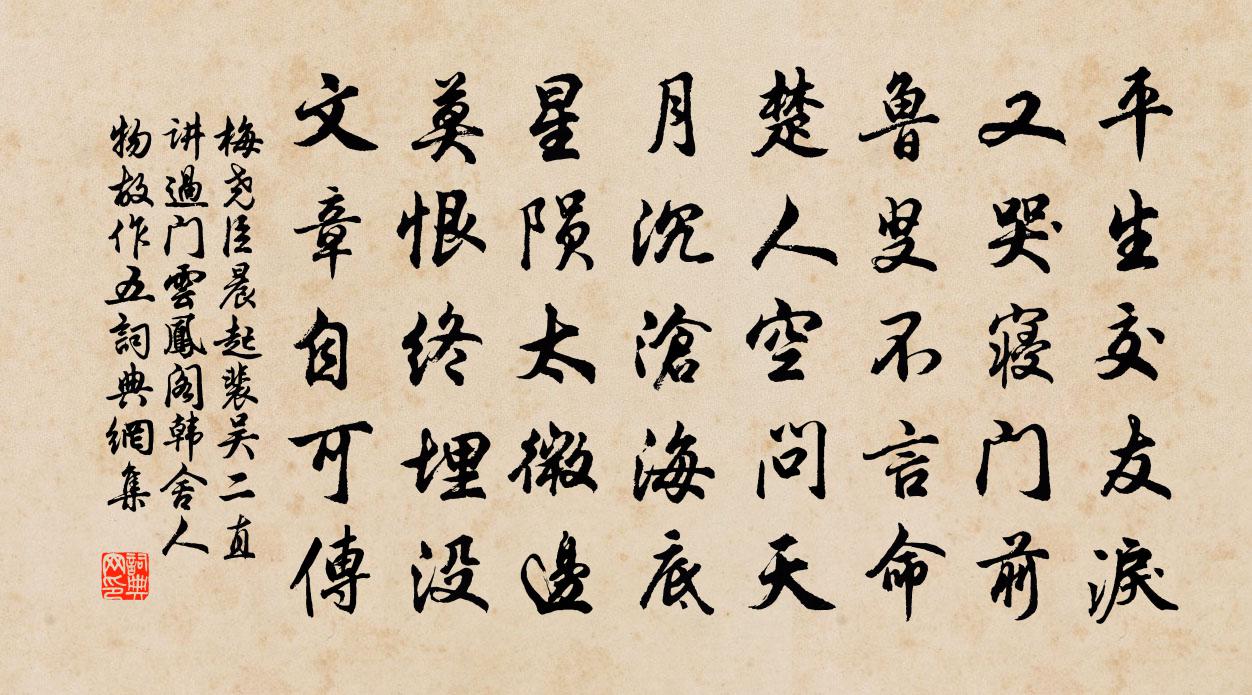 平生交友淚
又哭寢門前
魯叟不言命
楚人空問天
月沉滄海底
星陨太微邊
莫恨终埋没
文章自可傳
梅尧臣晨起裴吴二直
讲過门雲鳳阁韩舍人
物故作五詞典網集
詞典
网印